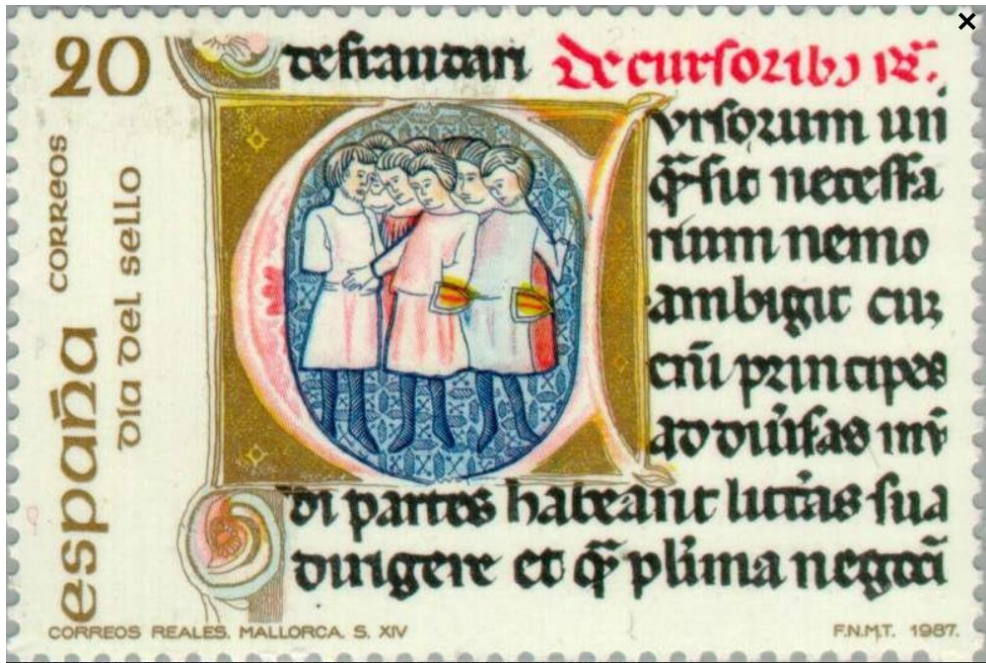 20
correos
día del sello
españa
defraudari De cursoribꝰ
ursorum uñ
q̄ sit necessa
rium nemo
ambigit cuȝ
cr̄ni principes
ad diũsas mũ
di partes habeant lr̄as sua
dirigere et q̄ pl̃ima negoci
CORREOS REALES. MALLORCA. S. XIV
F.N.M.T. 1987.